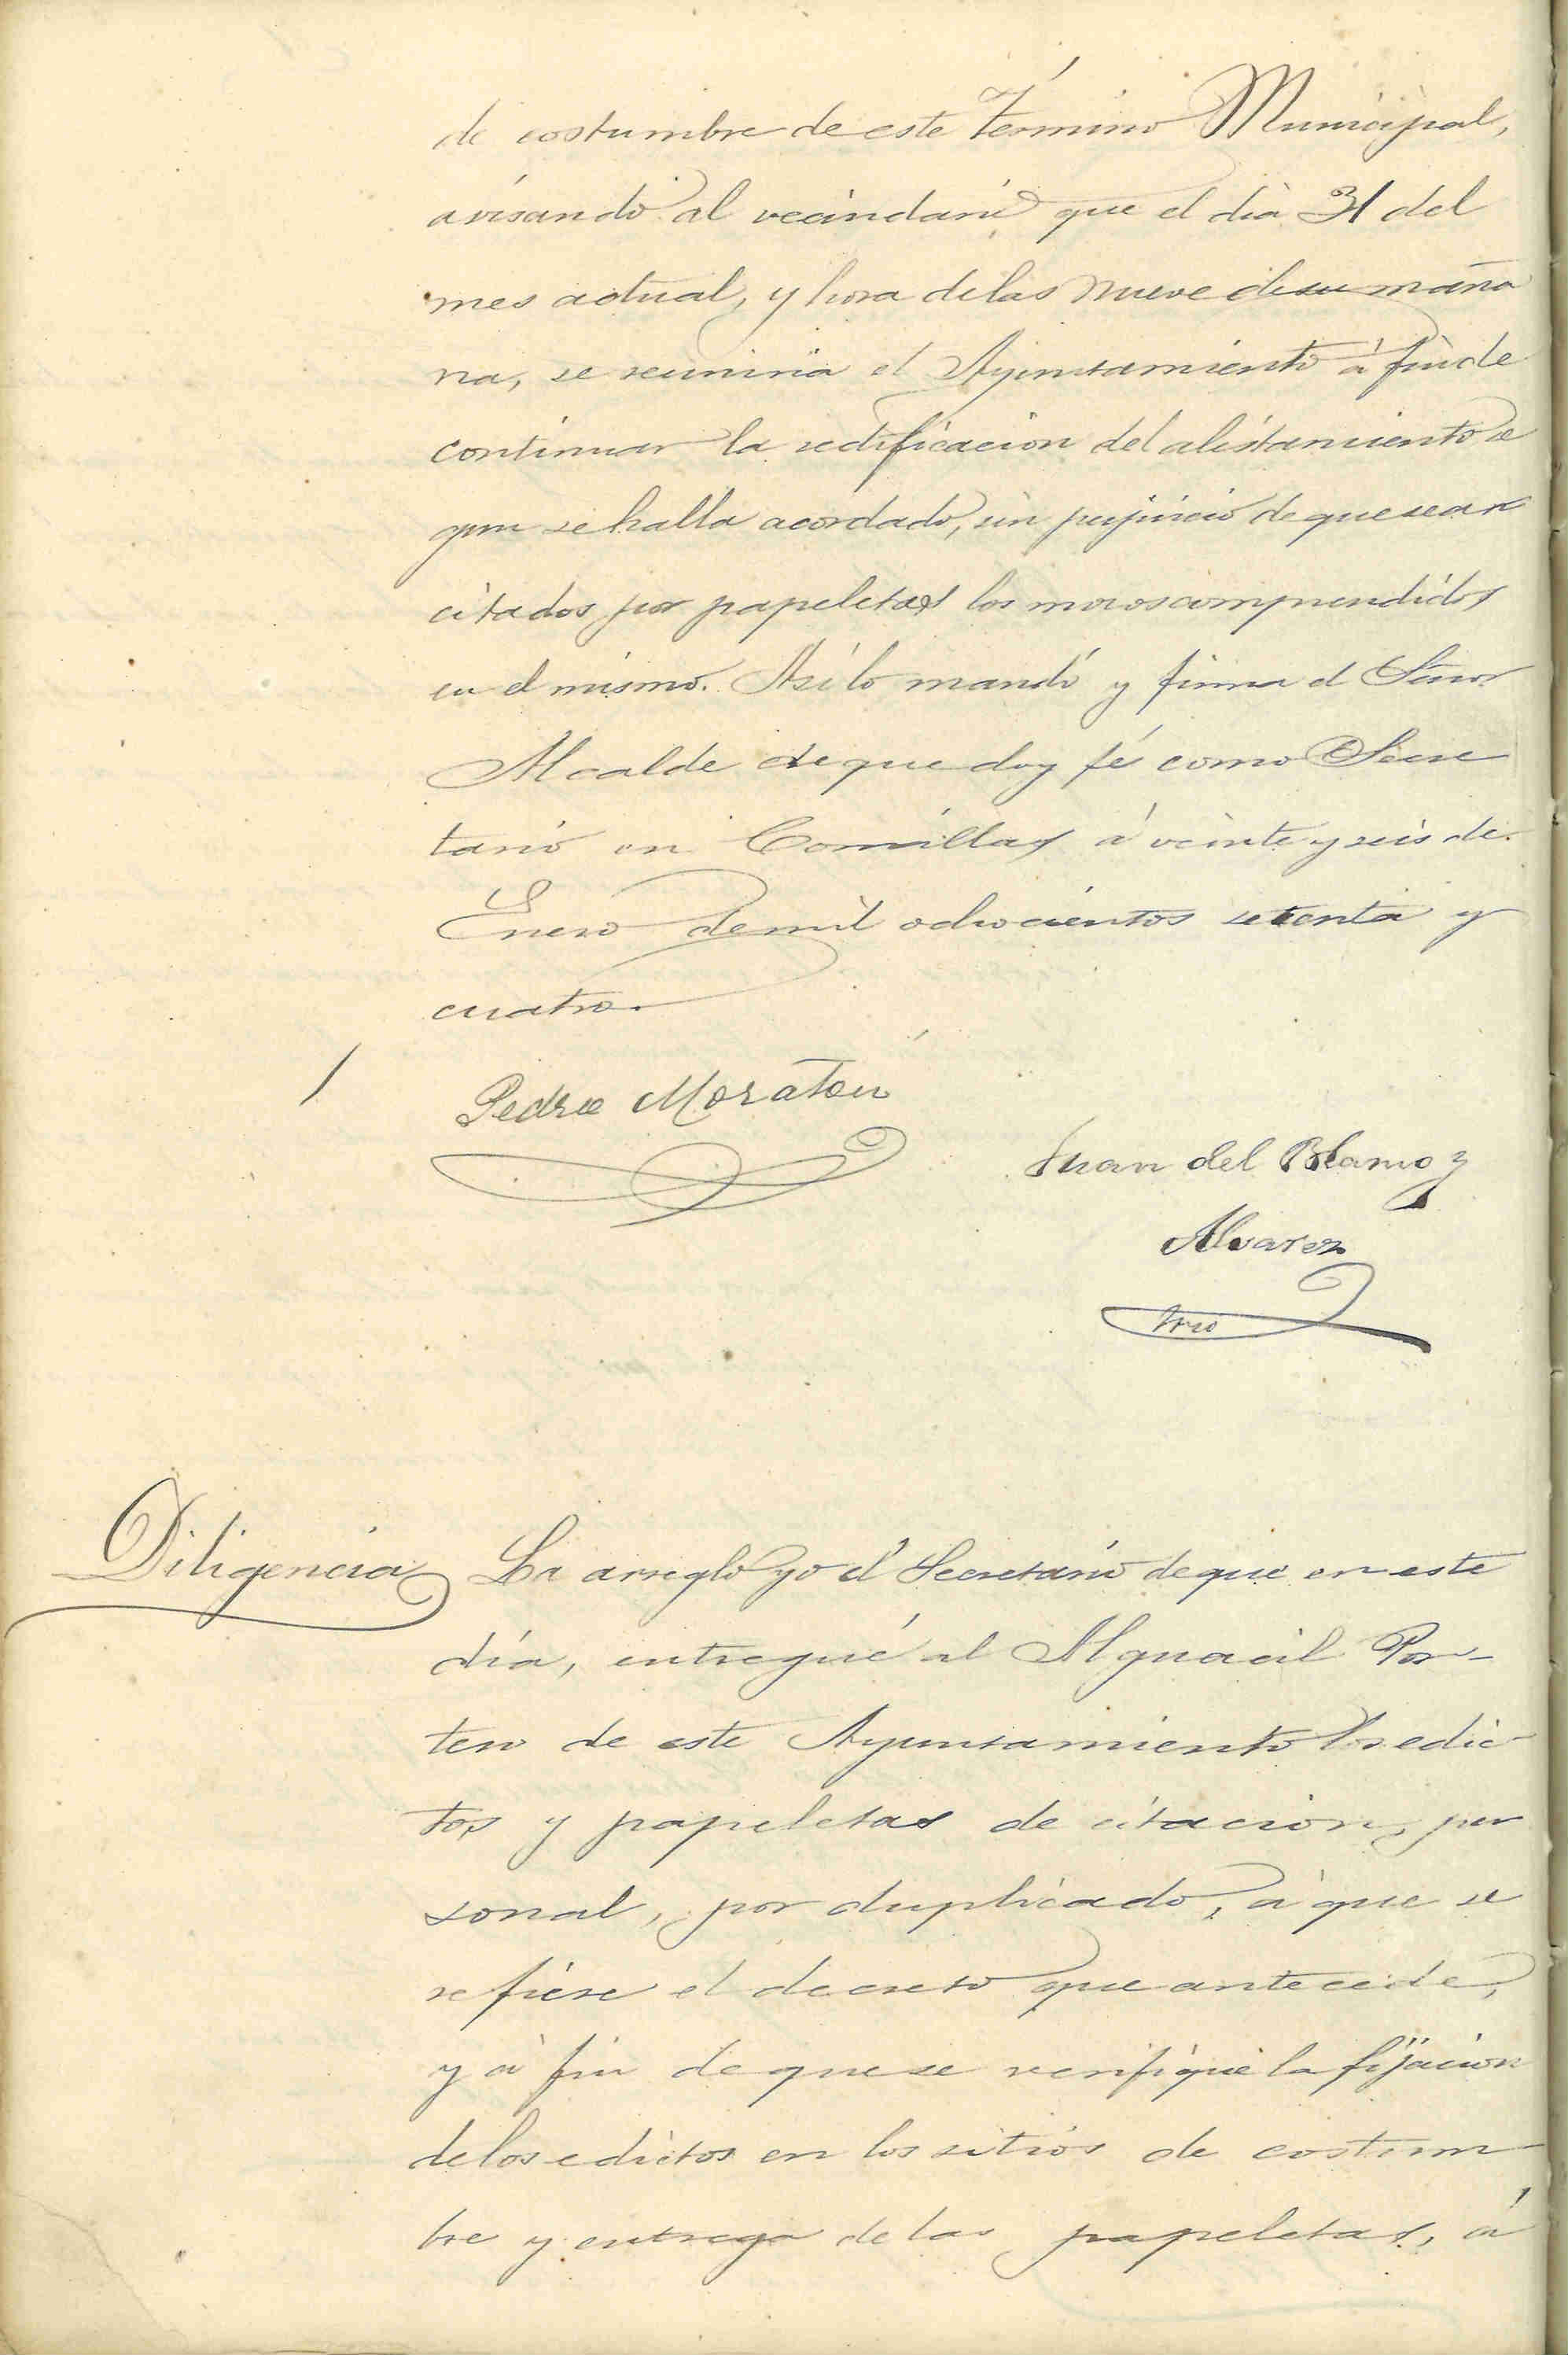 de costumbre de este término Municipal,
avisando al vecindario que el dia 31 del
mes actual, y hora delas nueve desu maña
na, se reunirá el Ayuntamiento á fin de
continuar la rectificacion del alistamiento se
gun se halla acordado, sin perjuicio de que sean
citados por papeletas los mozos comprendidos
en el mismo. Asi lo mandó y firma el Señor
Alcalde de que doy fé como Secre
tario en Comillas á veinte y seis de
Enero de mil ochocientos setenta y
cuatro.
Pedro Moraton
Juan del Blamo y
Alvarez
Srio
Diligencia La arreglo yo el Secretario de que en este
dia, entregué al Alguacil Por-
tero de este Ayuntamiento los edic
tos y papeletas de citacion, per
sonal, por duplicado, á que se
refiere el decreto que antecede,
y á fin de que se verifique la fijacion
delos edictos en los sitios de costum
bre y entrega de las papeletas, á